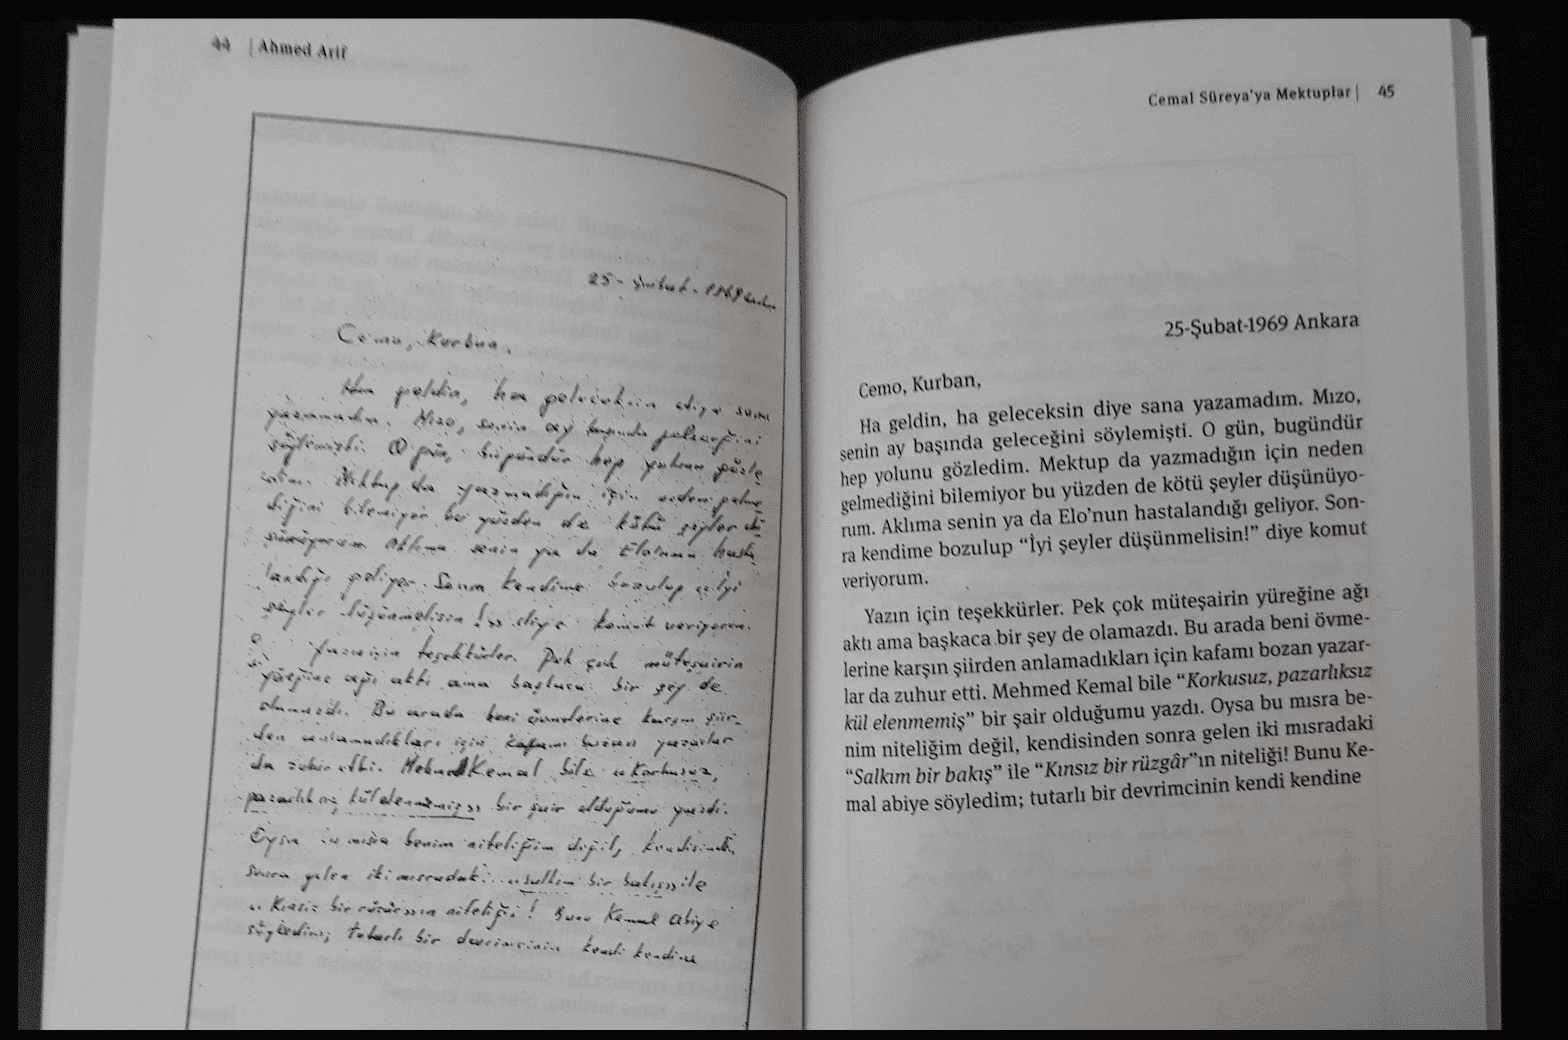 44 | Ahmed Arif
25-Şubat-1969 Ankara
Cemo, Kurban,
Ha geldin, ha geleceksin diye sana
yazamadım. Mızo, senin ay başında geleceğini
söylemişti. O gün, bugündür hep yolunu gözle
dim. Mektup da yazmadığın için neden gelme
diğini bilemiyor bu yüzden de kötü şeyler dü
şünüyorum. Aklıma senin ya da Elo'nun hasta
landığı geliyor. Sonra kendime bozulup "İyi
şeyler düşünmelisin!" diye komut veriyorum.
Yazın için teşekkürler. Pek çok müteşairin
yüreğine ağı aktı ama başkaca bir şey de
olamazdı. Bu arada beni övmelerine karşın şiir-
den anlamadıkları için kafamı bozan yazarlar
da zuhur etti. Mehmed Kemal bile "Korkusuz,
pazarlıksız kül elenmemiş" bir şair olduğumu yazdı.
Oysa bu mısra benim niteliğim değil, kendisinden
sonra gelen iki mısradaki "Salkım bir bakış" ile
"Kınsız bir rüzgâr"ın niteliği! Bunu Kemal abiye
söyledim; tutarlı bir devrimcinin kendi kendine
Cemal Süreya'ya Mektuplar | 45
25-Şubat-1969 Ankara
Cemo, Kurban,
Ha geldin, ha geleceksin diye sana yazamadım. Mızo,
senin ay başında geleceğini söylemişti. O gün, bugündür
hep yolunu gözledim. Mektup da yazmadığın için neden
gelmediğini bilemiyor bu yüzden de kötü şeyler düşünüyo-
rum. Aklıma senin ya da Elo'nun hastalandığı geliyor. Son-
ra kendime bozulup "İyi şeyler düşünmelisin!" diye komut
veriyorum.
Yazın için teşekkürler. Pek çok müteşairin yüreğine ağı
aktı ama başkaca bir şey de olamazdı. Bu arada beni övme-
lerine karşın şiirden anlamadıkları için kafamı bozan yazar-
lar da zuhur etti. Mehmed Kemal bile "Korkusuz, pazarlıksız
kül elenmemiş" bir şair olduğumu yazdı. Oysa bu mısra be-
nim niteliğim değil, kendisinden sonra gelen iki mısradaki
"Salkım bir bakış" ile "Kınsız bir rüzgâr"ın niteliği! Bunu Ke-
mal abiye söyledim; tutarlı bir devrimcinin kendi kendine